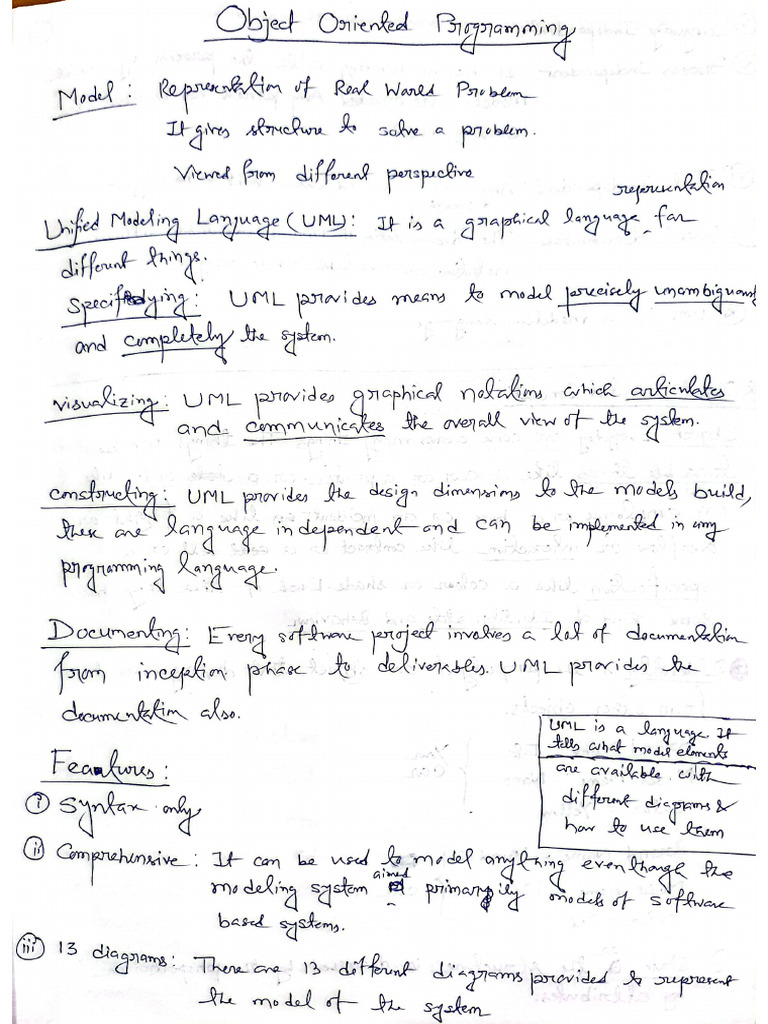 Object Oriented Programming
Model: Representation of Real World Problem
It gives structure to solve a problem.
Viewed from different perspective
representation
Unified Modeling Language (UML): It is a graphical language for
different things.
Specifying: UML provides means to model precisely unambiguous
and completely the system.
visualizing: UML provides graphical notations which articulates
and communicates the overall view of the system.
constructing: UML provides the design dimensions to the models build,
these are language independent and can be implemented in any
programming language.
Documenting: Every software project involves a lot of documentation
from inception phase to deliverables. UML provides the
documentation also.
UML is a language. It
tells what model elements
are available with
different diagrams &
how to use them
Features:
i Syntax only
ii Comprehensive: It can be used to model anything even though the
modeling system aimed primarily models of software
based systems.
iii 13 diagrams: There are 13 different diagrams provided to represent
the model of the system